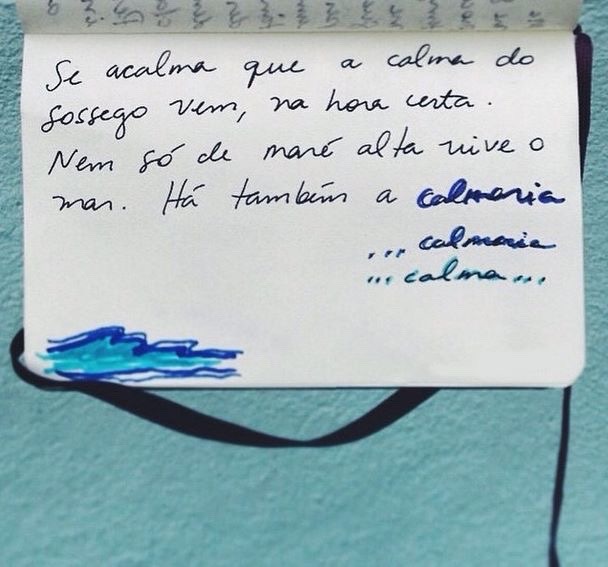 Se acalma que a calma do
sossego vem, na hora certa.
Nem só de maré alta vive o
mar. Há também a calmaria
... calmaria
... calma...